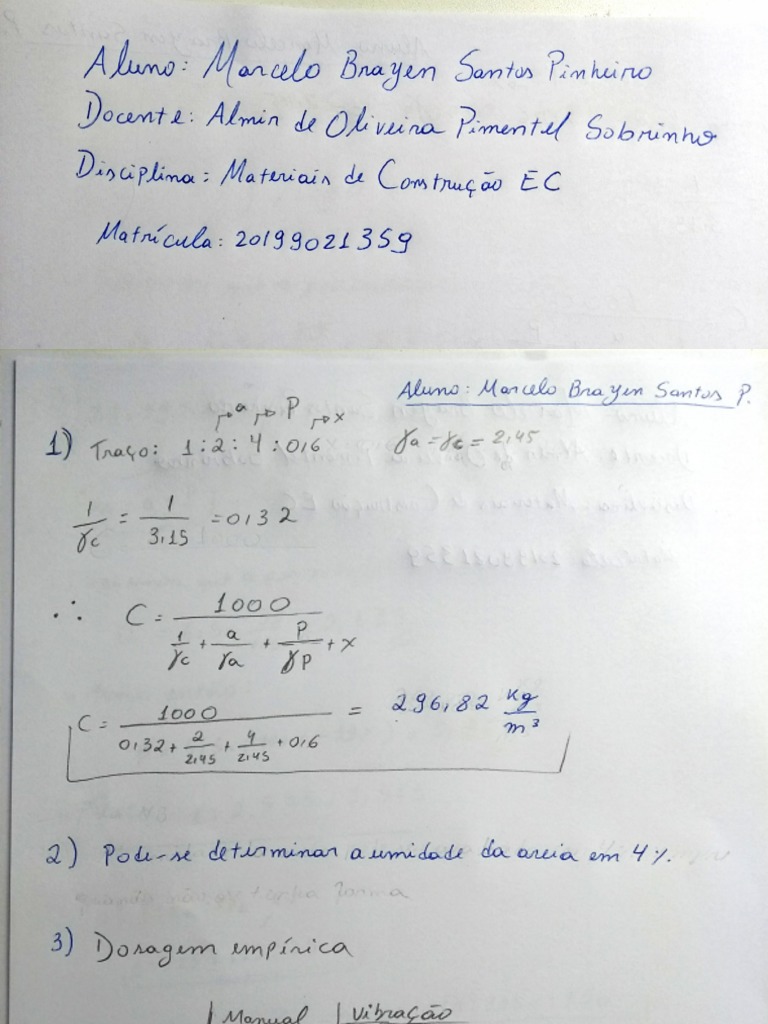 Aluno: Marcelo Brayen Santos Pinheiro
Docente: Almir de Oliveira Pimentel Sobrinho
Disciplina: Materiais de Construção EC
Matrícula: 20199021359
Aluno: Marcelo Brayen Santos P.
a P x
1) Traço: 1:2:4:0,6 γa = γc = 2,45
1/γc = 1/3,15 = 0,32
∴ C = 1000/(1/γc + a/γa + P/γP + x)
C = 1000/(0,32 + 2/2,45 + 4/2,45 + 0,6) = 296,82 kg/m³
2) Pode-se determinar a umidade da areia em 4%.
3) Dosagem empírica
| Manual | Vibração